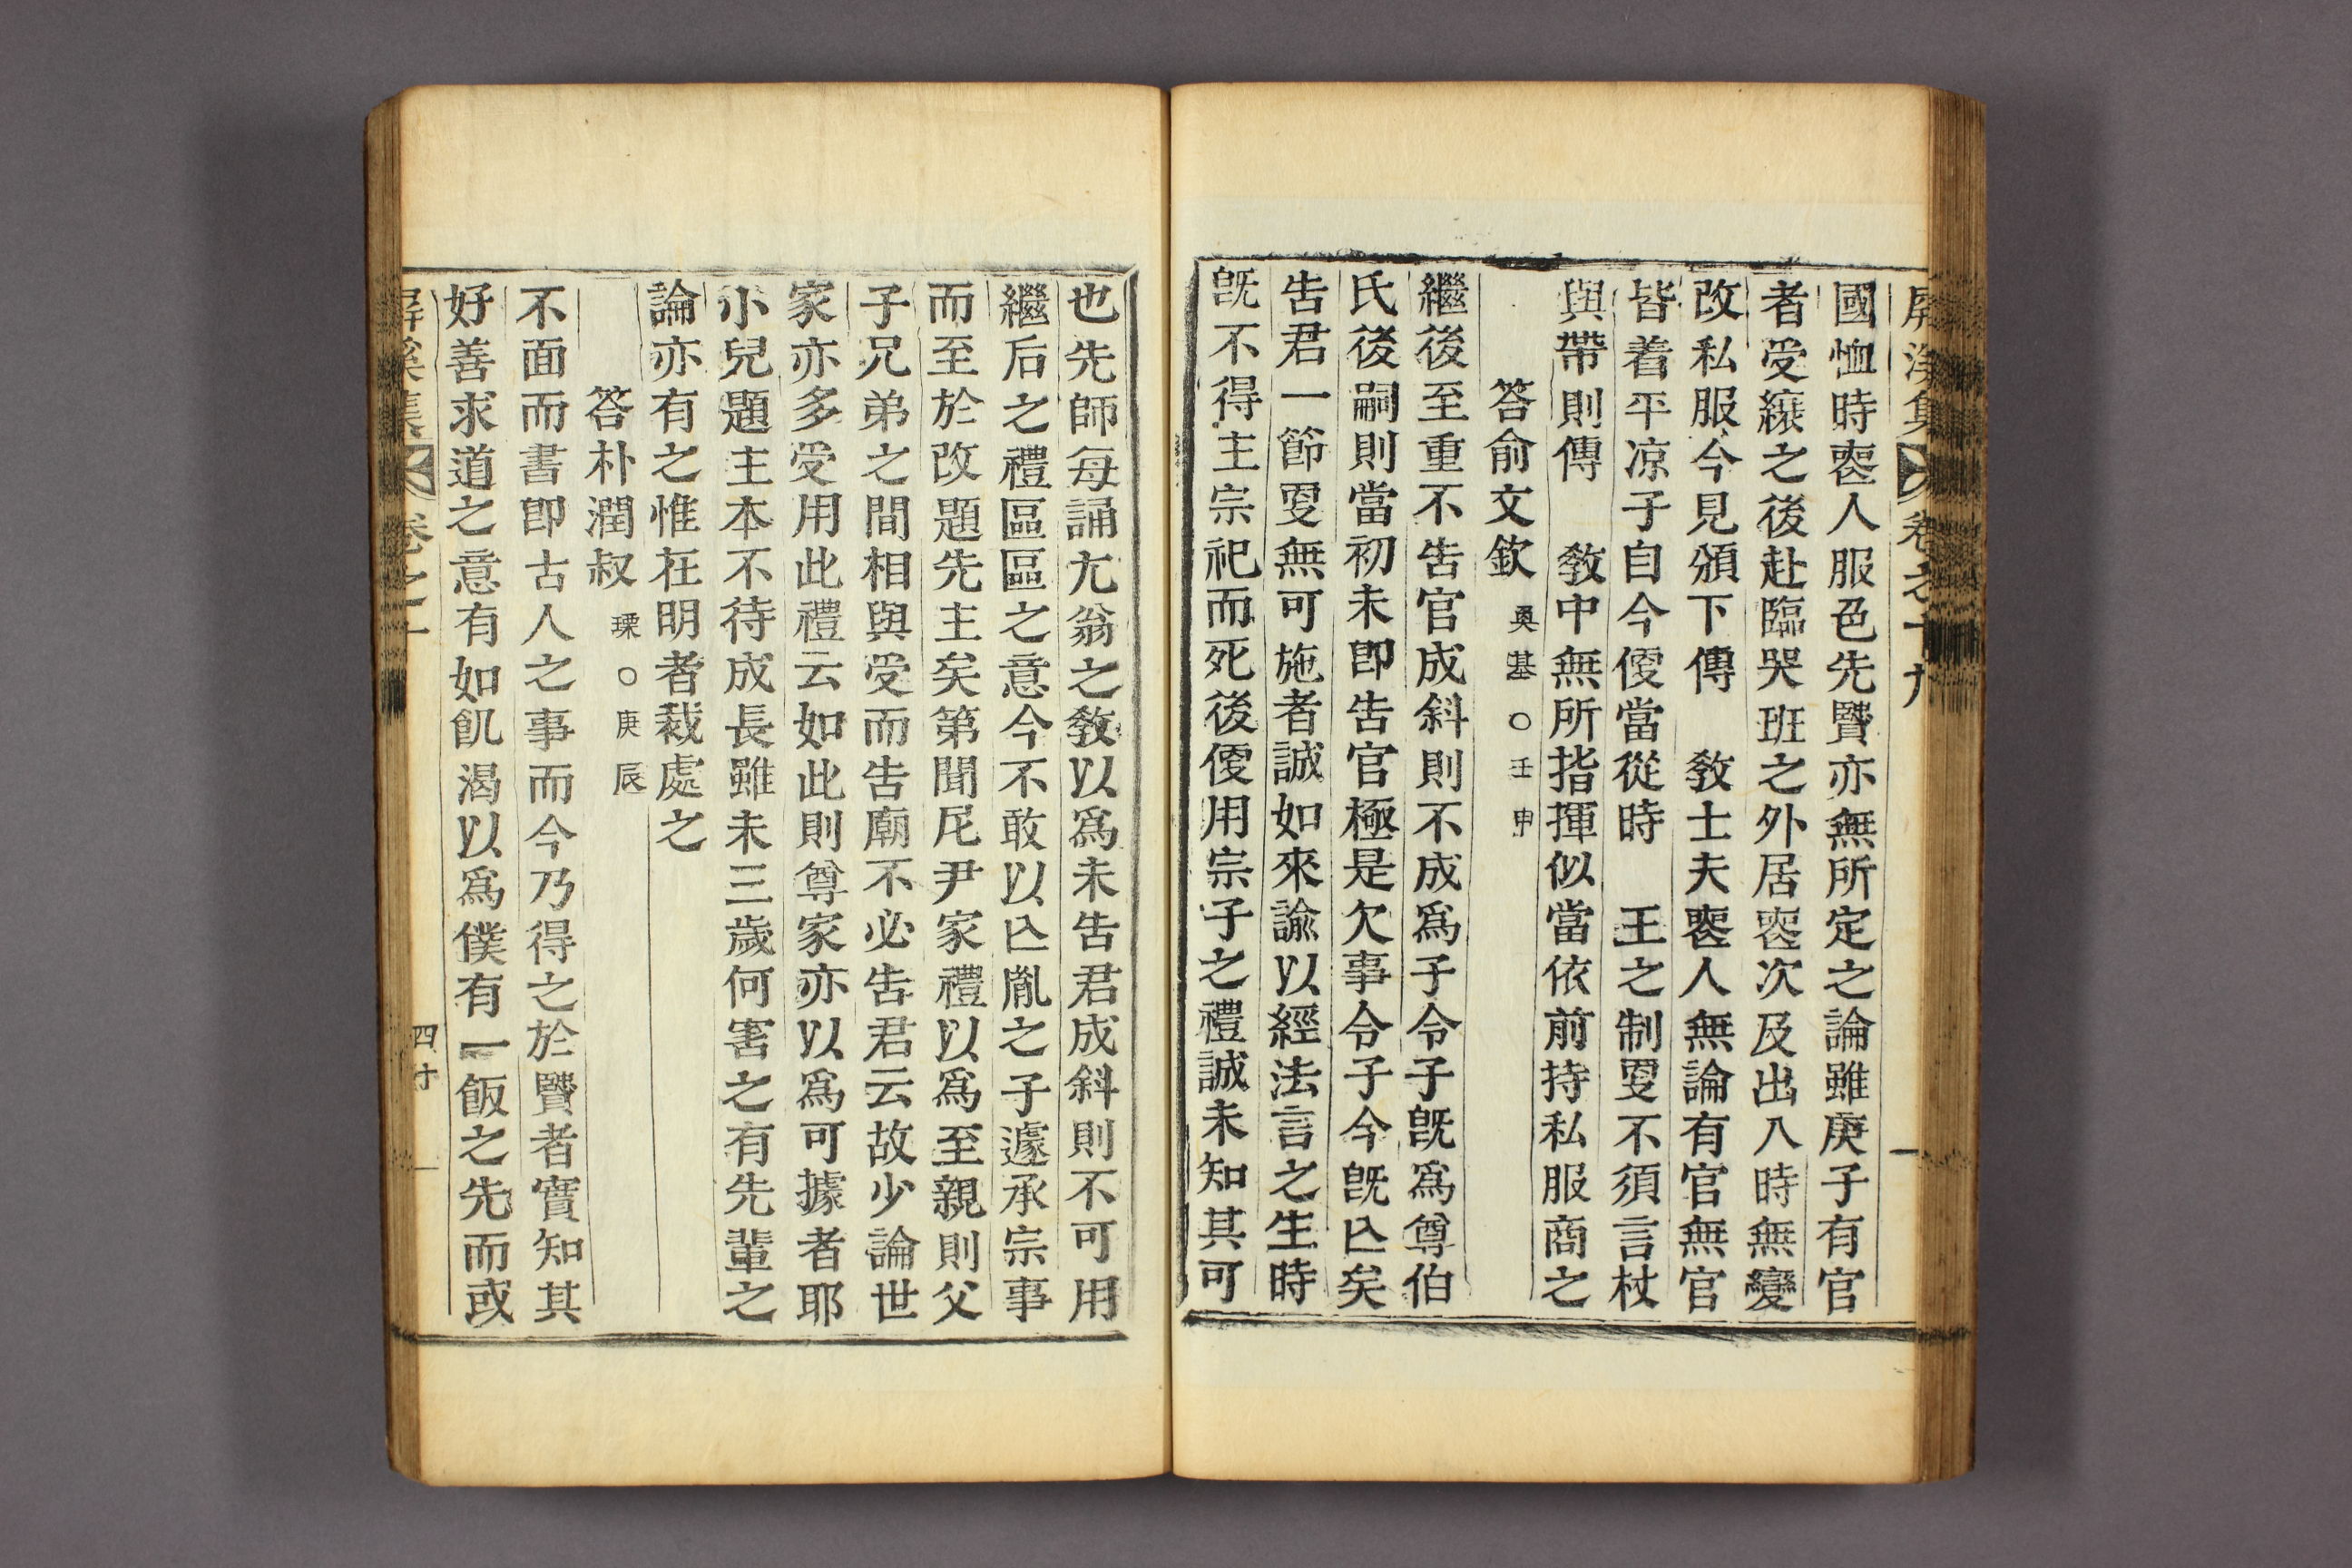 屛溪集 卷之十九
國恤時喪人服色先賢亦無所定之論雖庚子有官
者受縗之後赴臨哭班之外居喪次及出入時無變
改私服今見頒下傳 敎士夫喪人無論有官無官
皆着平凉子自今便當從時 王之制更不須言杖
與帶則傳 敎中無所指揮似當依前持私服商之
答兪文欽 奭基○壬申
繼後至重不告官成斜則不成爲子令子旣爲尊伯
氏後嗣則當初未卽告官極是欠事令子今旣亾矣
告君一節更無可施者誠如來諭以經法言之生時
旣不得主宗祀而死後便用宗子之禮誠未知其可
也先師每誦尤翁之敎以爲未告君成斜則不可用
繼后之禮區區之意今不敢以亾胤之子遽承宗事
而至於改題先主矣第聞尼尹家禮以爲至親則父
子兄弟之間相與受而告廟不必告君云故少論世
家亦多受用此禮云如此則尊家亦以爲可據者耶
小兒題主本不待成長雖未三歲何害之有先輩之
論亦有之惟在明者裁處之
答朴潤叔 瑮○庚辰
不面而書卽古人之事而今乃得之於賢者實知其
好善求道之意有如飢渴以爲僕有一飯之先而或
屛溪集 卷之二十 四十